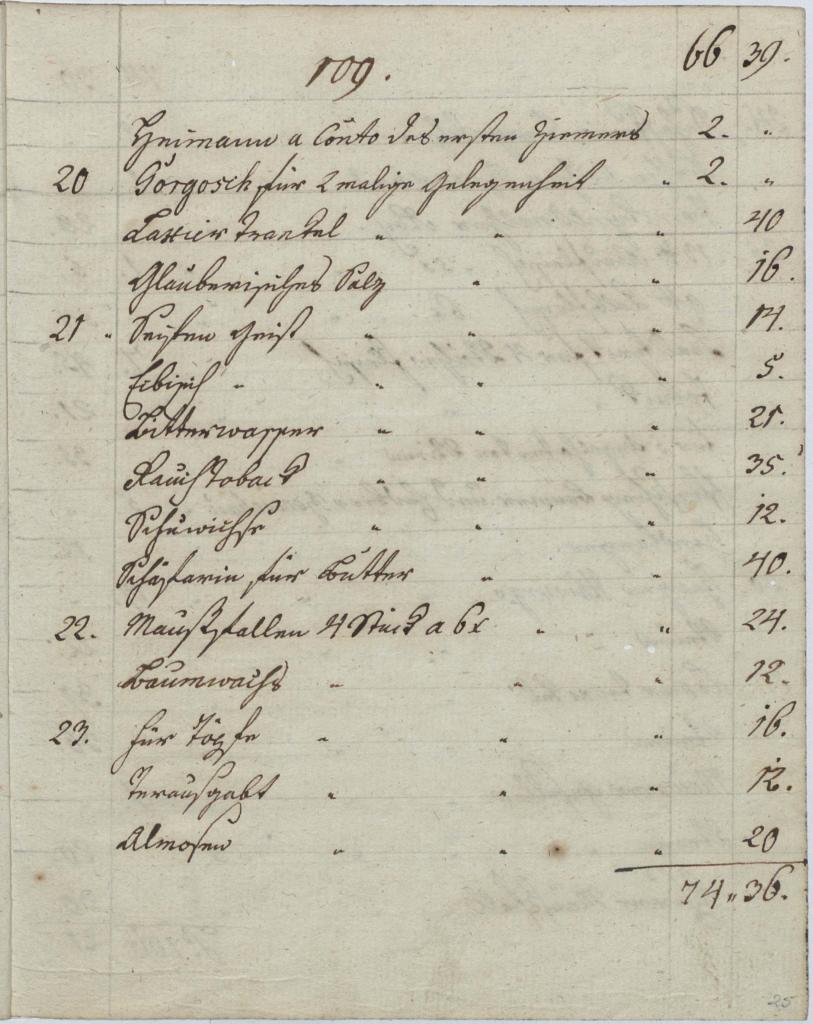 109. 66 39.
Heimann a Conto des ersten Ziemers 2. "
20 Görgosch für 2 malige Gelegenheit " 2. "
" " " 40
Glauberisches Salz " " 16.
21 " Seifen Geist " " " 14.
Eibisch " " " " 5.
Bitterwasser " " " 21.
Rauchtoback " " " 35.
Schuwichse " " " 12.
Schäffarin für Butter " " 40.
22. Maußfallen 4 Stück a 6x " " 24.
Baumwachs " " " 12.
23. für Töpfe " " " 16.
" " " 12.
Almosen " " " 20
74 " 36.
25